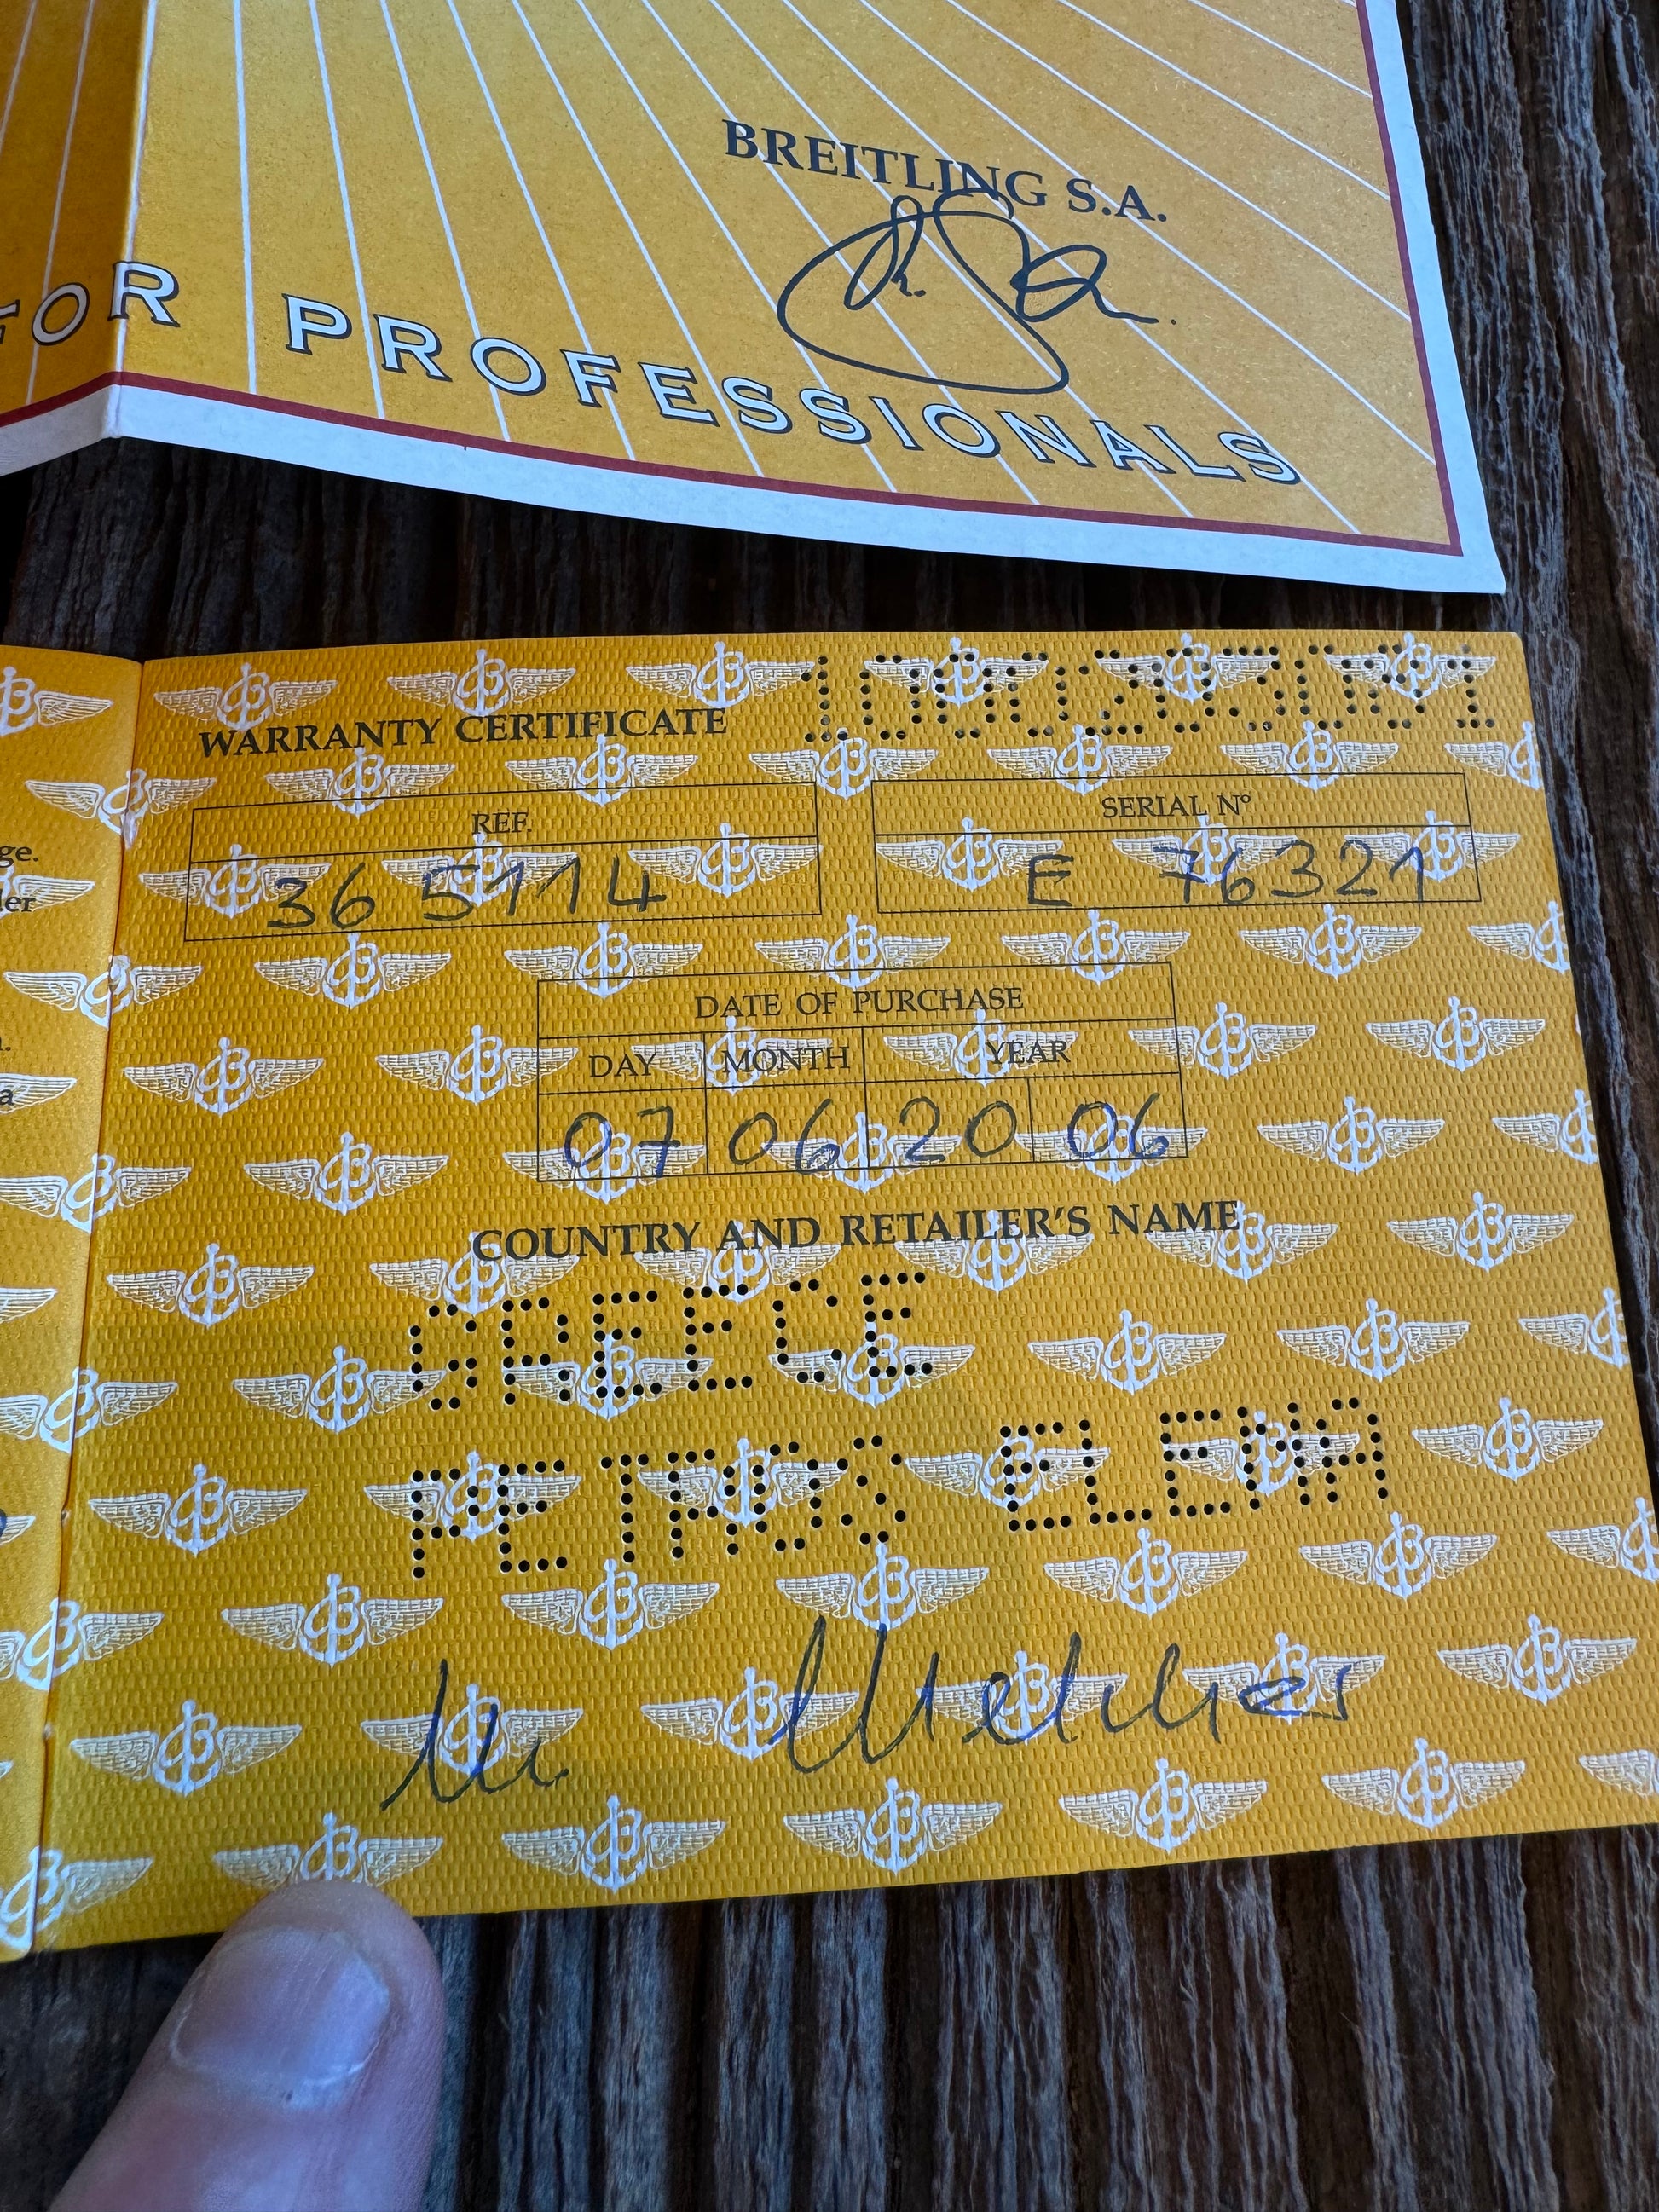 BREITLING S.A.
FOR PROFESSIONALS
WARRANTY CERTIFICATE
REF.
SERIAL Nº
36 5114
E 76321
DATE OF PURCHASE
DAY MONTH YEAR
07 06 20 06
COUNTRY AND RETAILER'S NAME
GREECE
PETROS ELENA
ge.